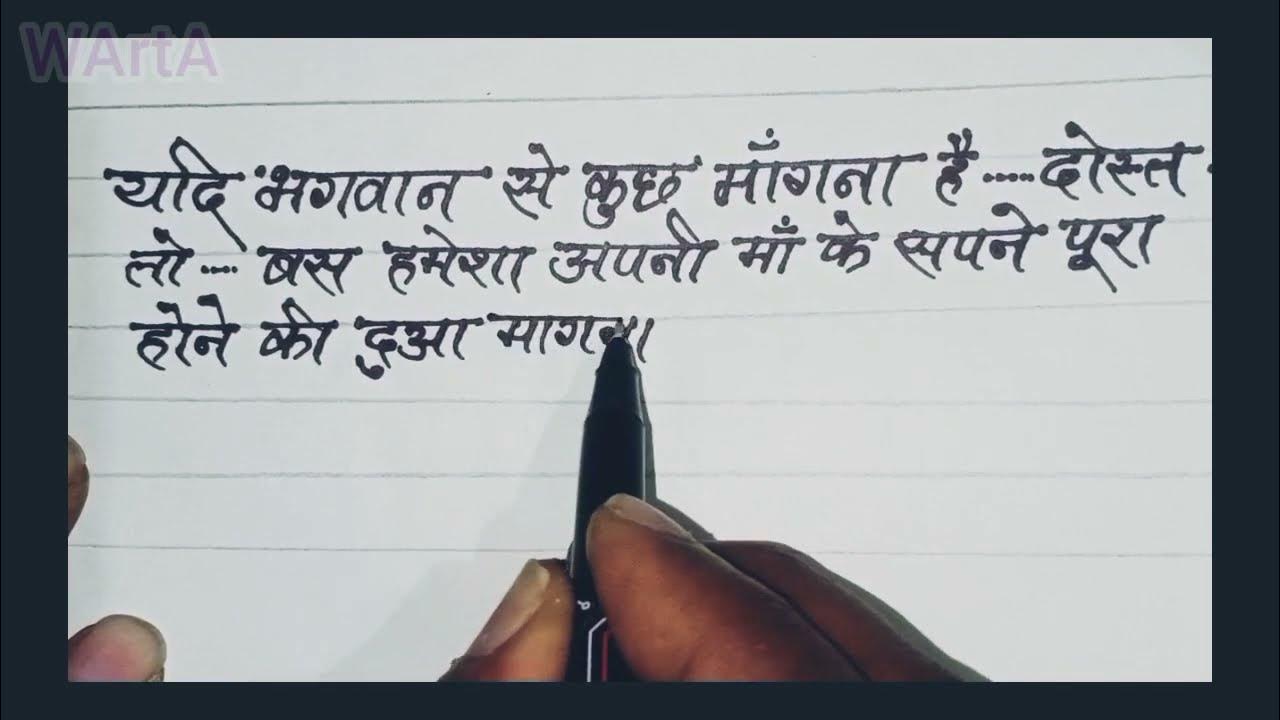 WArtA
यदि भगवान से कुछ माँगना है.....दोस्त
तो.... बस हमेशा अपनी माँ के सपने पूरा
होने की दुआ मागना